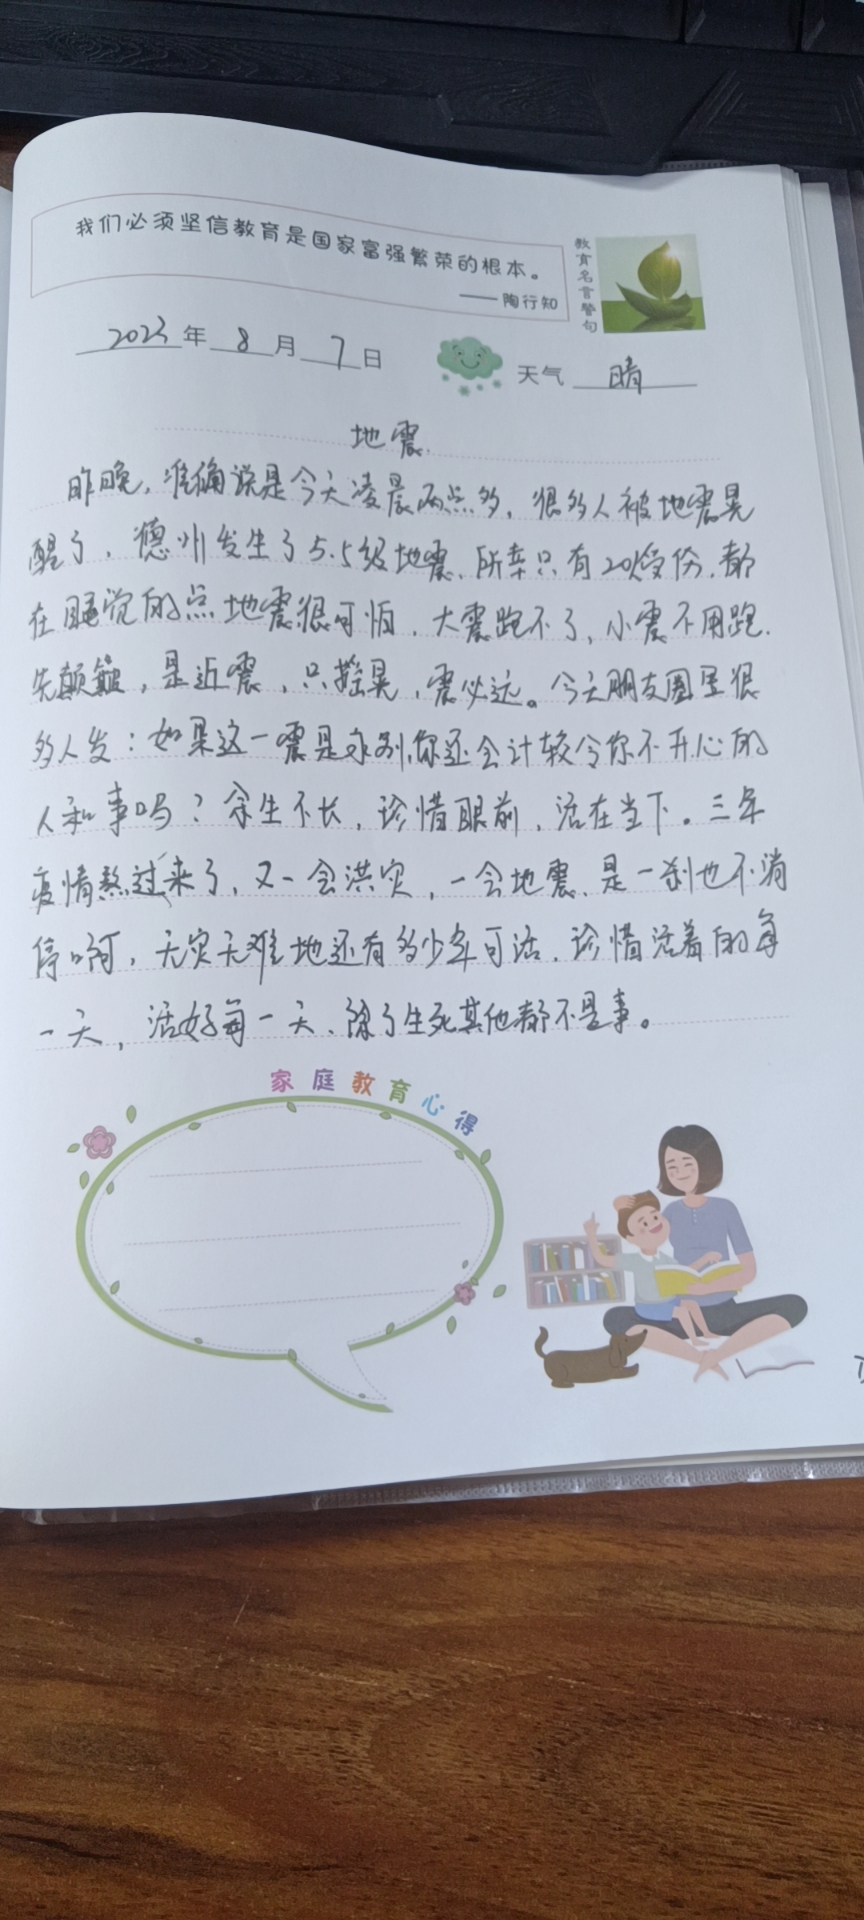 我们必须坚信教育是国家富强繁荣的根本。
——陶行知
教育名言警句
2023年8月7日
天气 晴
地震.
昨晚,准确说是今天凌晨两点多,很多人被地震晃
醒了,德州发生了5.5级地震,所幸只有20人受伤,都
在睡觉的点地震很可怕,大震跑不了,小震不用跑.
先颠簸,是近震,只摇晃,震必远。今天朋友圈里很
多人发:如果这一震是永别,你还会计较令你不开心的
人和事吗?余生不长,珍惜眼前,活在当下。三年
疫情熬过来了,又一会洪灾,一会地震,是一刹也不消
停啊,天灾天难地还有多少年可活,珍惜活着的每
一天,活好每一天,除了生死其他都不是事。
家庭教育心得